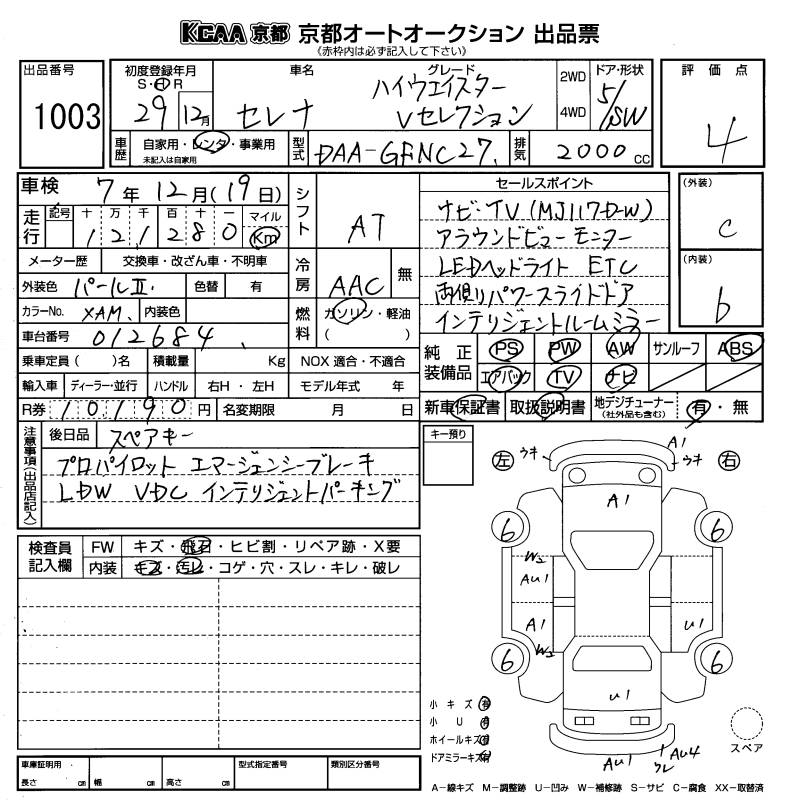 KCAA 京都 京都オートオークション 出品票
(赤枠内は必ず記入して下さい)
出品番号
1003
初度登録年月
S・H・R
29 12月
車名
セレナ
グレード
ハイウェイスター
Vセレクション
2WD
4WD
ドア・形状
5/SW
評価点
4
車歴
自家用・レンタ・事業用
未記入は自家用
型式
DAA-GFNC27
排気
2000 CC
車検
7年 12月(19日)
走行
記号 十 万 千 百 十 一
121280
マイル
Km
シフト
AT
セールスポイント
ナビ・TV (MJ117D-W)
アラウンドビューモニター
LEDヘッドライト ETC
両側パワースライドドア
インテリジェントルームミラー
(外装)
C
(内装)
b
メーター歴 交換車・改ざん車・不明車
外装色 パールII 色替 有
冷房
AAC 無
カラーNo. XAM 内装色
燃料
ガソリン・軽油
( )
車台番号 012684
乗車定員( )名 積載量 Kg NOX 適合・不適合
輸入車 ディーラー・並行 ハンドル 右H・左H モデル年式 年
R券 10190円 名変期限 月 日
純正装備品
PS PW AW サンルーフ ABS
エアバック TV ナビ
新車保証書 取扱説明書 地デジチューナー
(社外品も含む) 有・無
注意事項(出品店記入)
後日品 スペアキー
プロパイロット エマージェンシーブレーキ
LDW VDC インテリジェントパーキング
キー預り
左 ウキ ウキ A1 右
A1
6 6
W2
AU1
A1 U1
W2
6 6
U1
AU1 AU4
ワレ
検査員記入欄
FW キズ・飛石・ヒビ割・リペア跡・X要
内装 キズ・汚レ・コゲ・穴・スレ・キレ・破レ
小キズ 有
小U 有
ホイールキズ 有
ドアミラーキズ 有
スペア
車庫証明用
長さ cm 幅 cm 高さ cm
型式指定番号
類別区分番号
A-線キズ M-調整跡 U-凹み W-補修跡 S-サビ C-腐食 XX-取替済